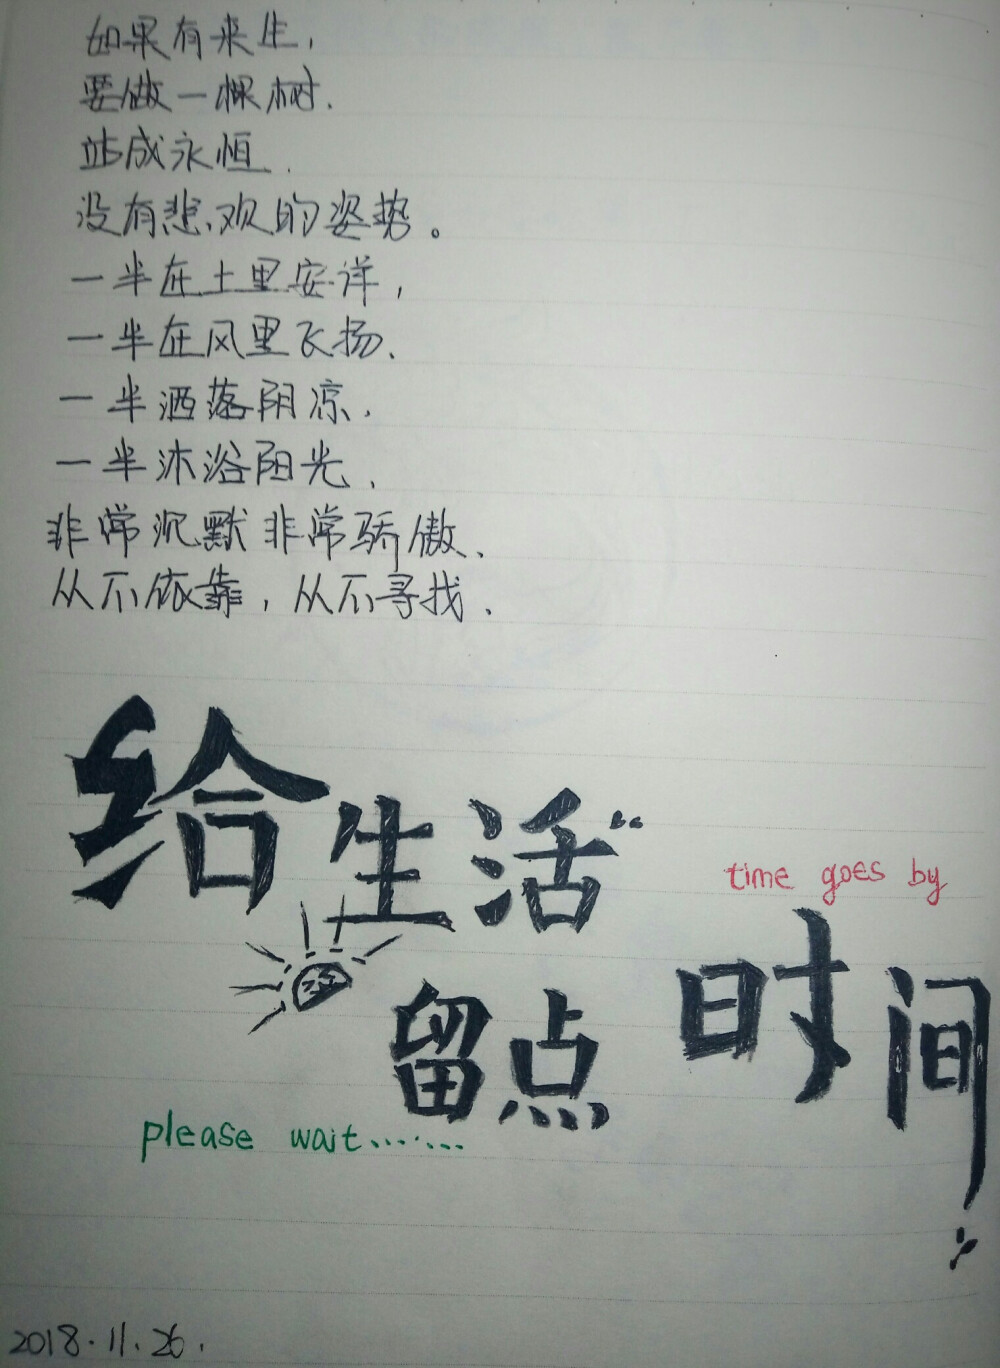 如果有来生,
要做一棵树.
站成永恒.
没有悲欢的姿势。
一半在土里安详,
一半在风里飞扬、
一半洒落阴凉,
一半沐浴阳光,
非常沉默非常骄傲、
从不依靠,从不寻找、
给生活“
time goes by
留点时间
please wait.......
2018.11.26.